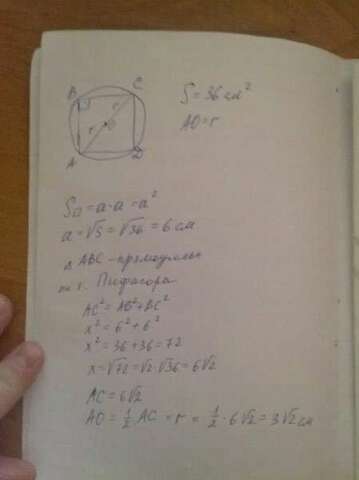 B C
S = 36 см²
r
r O
AO = r
A D
S□ = a·a = a²
a = √S = √36 = 6 см
△ ABC - прямоугольн
Пифагора
AC² = AB² + BC²
x² = 6² + 6²
x² = 36 + 36 = 72
x = √72 = √2·√36 = 6√2
AC = 6√2
AO = ½ AC = r = ½ · 6√2 = 3√2 см